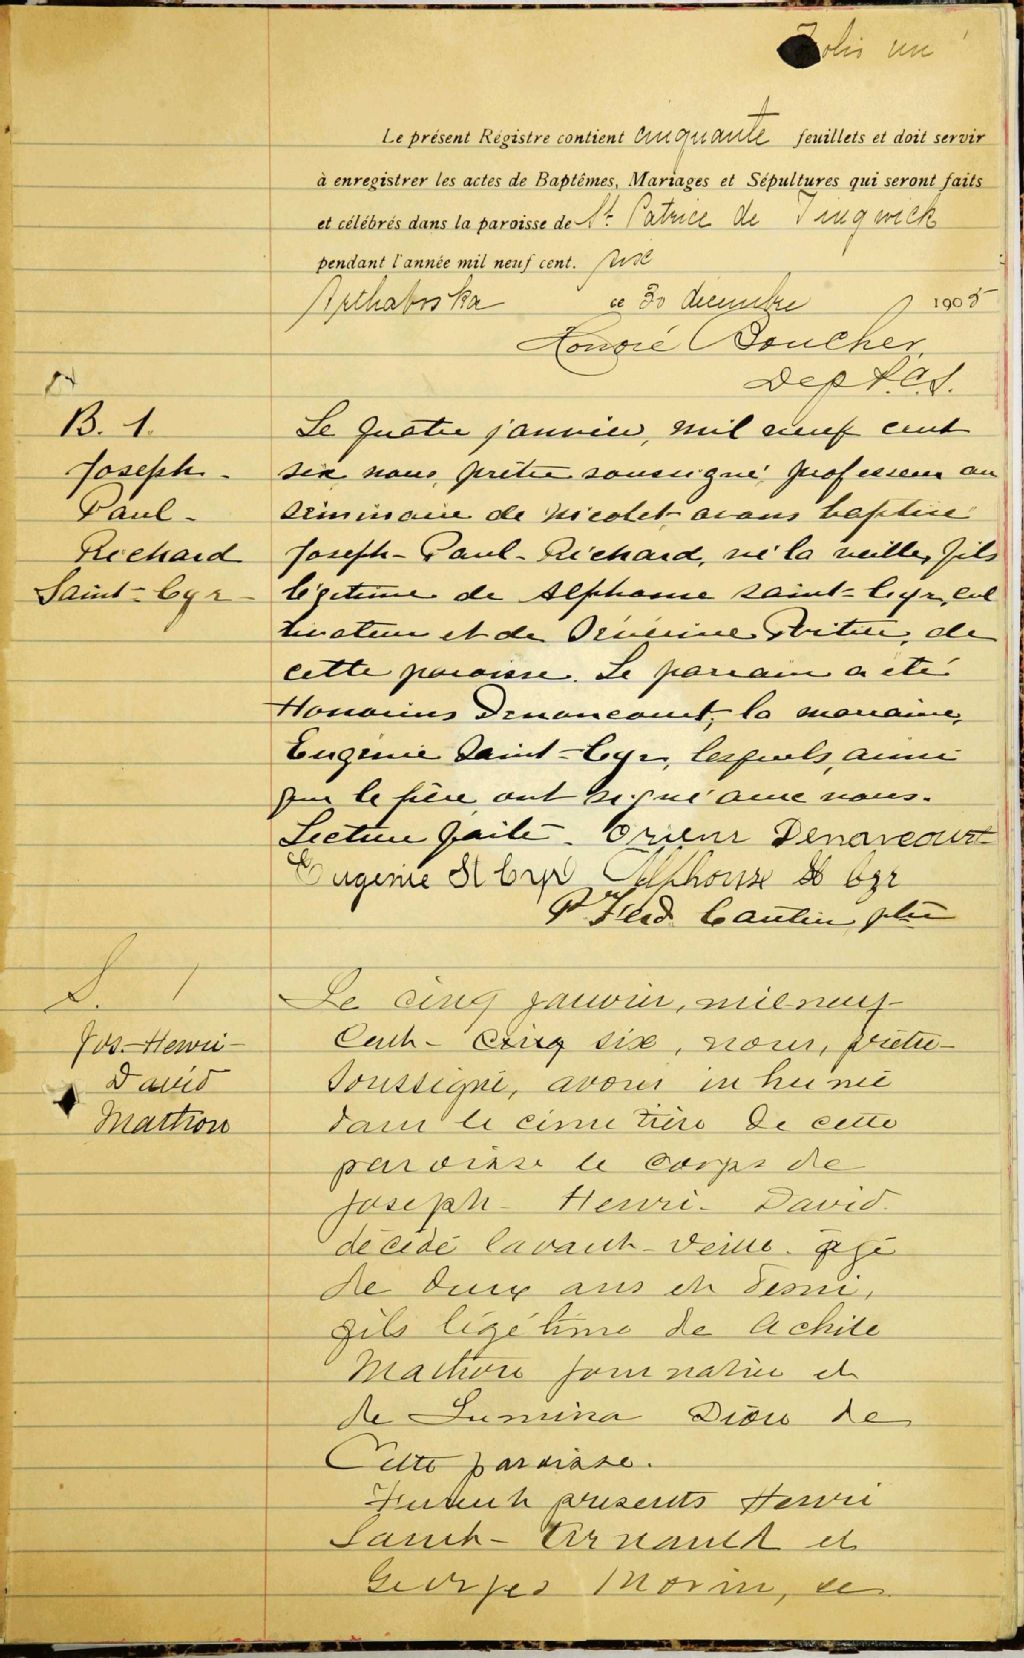 Folio un
Le présent Régistre contient cinquante feuillets et doit servir
à enregistrer les actes de Baptêmes, Mariages et Sépultures qui seront faits
et célébrés dans la paroisse de St Patrice de Tingwick
pendant l'année mil neuf cent. six
Arthabaska ce 30 décembre 1905
Honoré Boucher,
Dep P.C.S.
B. 1.
Joseph-
Paul-
Richard
Saint-Cyr-
Le quatre janvier, mil neuf cent
six nous, prêtre soussigné, professeur au
séminaire de Nicolet avons baptisé
Joseph-Paul-Richard, né la veille, fils
légitime de Alphonse Saint-Cyr, cul
tivateur et de Séverine Poitier, de
cette paroisse. Le parrain a été
Honorius Denoncourt, la marraine,
Eugénie Saint-Cyr, lesquels, ainsi
que le père ont signé avec nous.
Lecture faite. Denoncourt
Eugénie St Cyr Alphonse St Cyr
P. Ferd. Cantin ptre
S. 1
Jos.-Henri-
David
Mathon
Le cinq janvier, mil neuf
cent- cinq six, nous, prêtre
soussigné, avons inhumé
dans le cimetière de cette
paroisse le corps de
Joseph- Henri- David
décédé lavant-veille. agé
de deux ans et demi,
fils légétime de Achile
Mathon journalier et
de Lumina Dion de
Cette paroisse.
Furent présents Henri
Saint- Arnault et
Georges Morin,